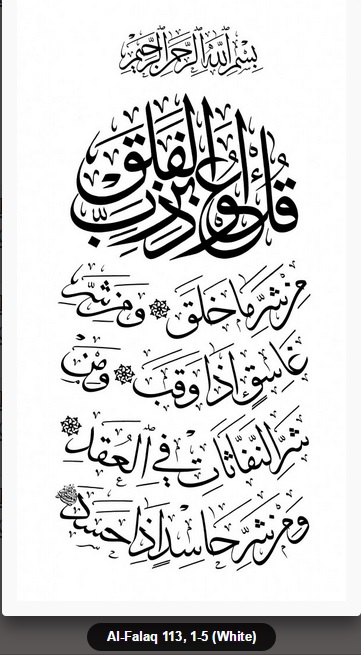 بِسْمِ اللَّهِ الرَّحْمَنِ الرَّحِيمِ
قُلْ أَعُوذُ بِرَبِّ الْفَلَقِ
مِن شَرِّ مَا خَلَقَ وَمِن شَرِّ
غَاسِقٍ إِذَا وَقَبَ وَمِن
شَرِّ النَّفَّاثَاتِ فِي الْعُقَدِ
وَمِن شَرِّ حَاسِدٍ إِذَا حَسَدَ
Al-Falaq 113, 1-5 (White)